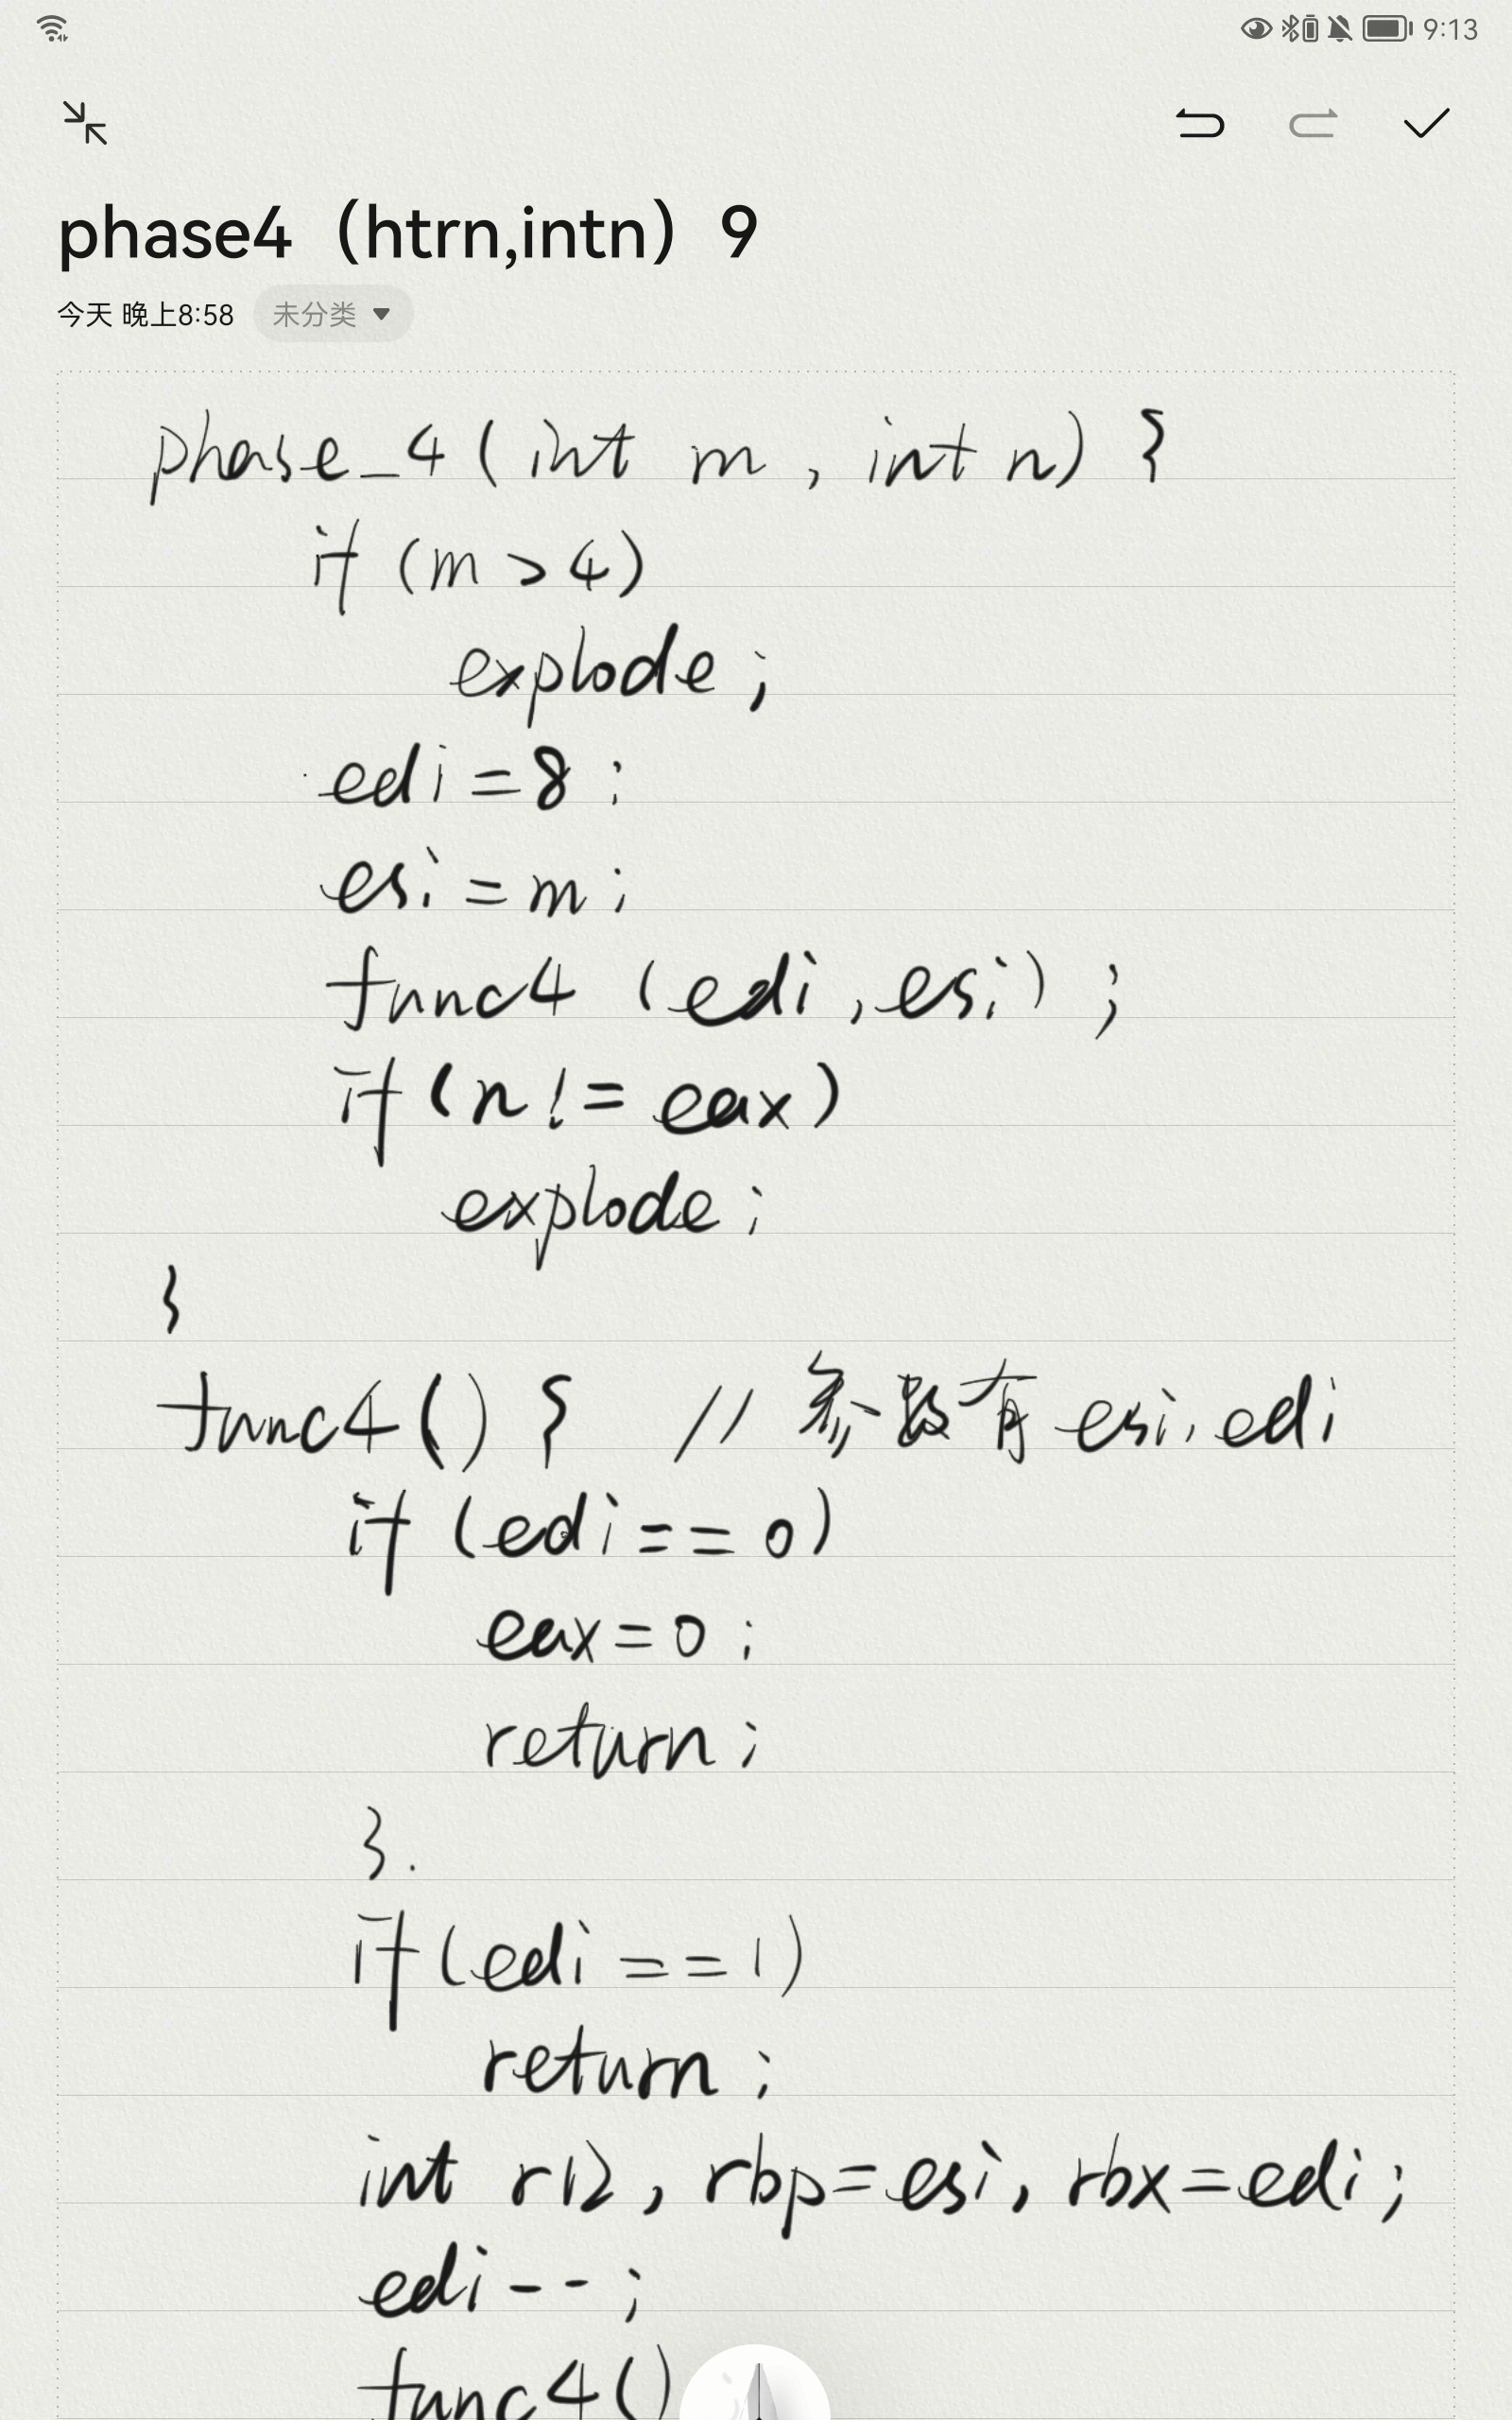 9:13
phase4（htrn,intn）9
今天 晚上8:58 未分类
phase_4 ( int m , int n) {
if (m > 4)
explode ;
edi = 8 ;
esi = m ;
func4 (edi , esi) ;
if (n != eax)
explode ;
}
func4 () { // 参数有 esi, edi
if (edi == 0)
eax = 0 ;
return ;
}.
if (edi == 1)
return ;
int r12 , rbp = esi , rbx = edi ;
edi -- ;
func4 ()